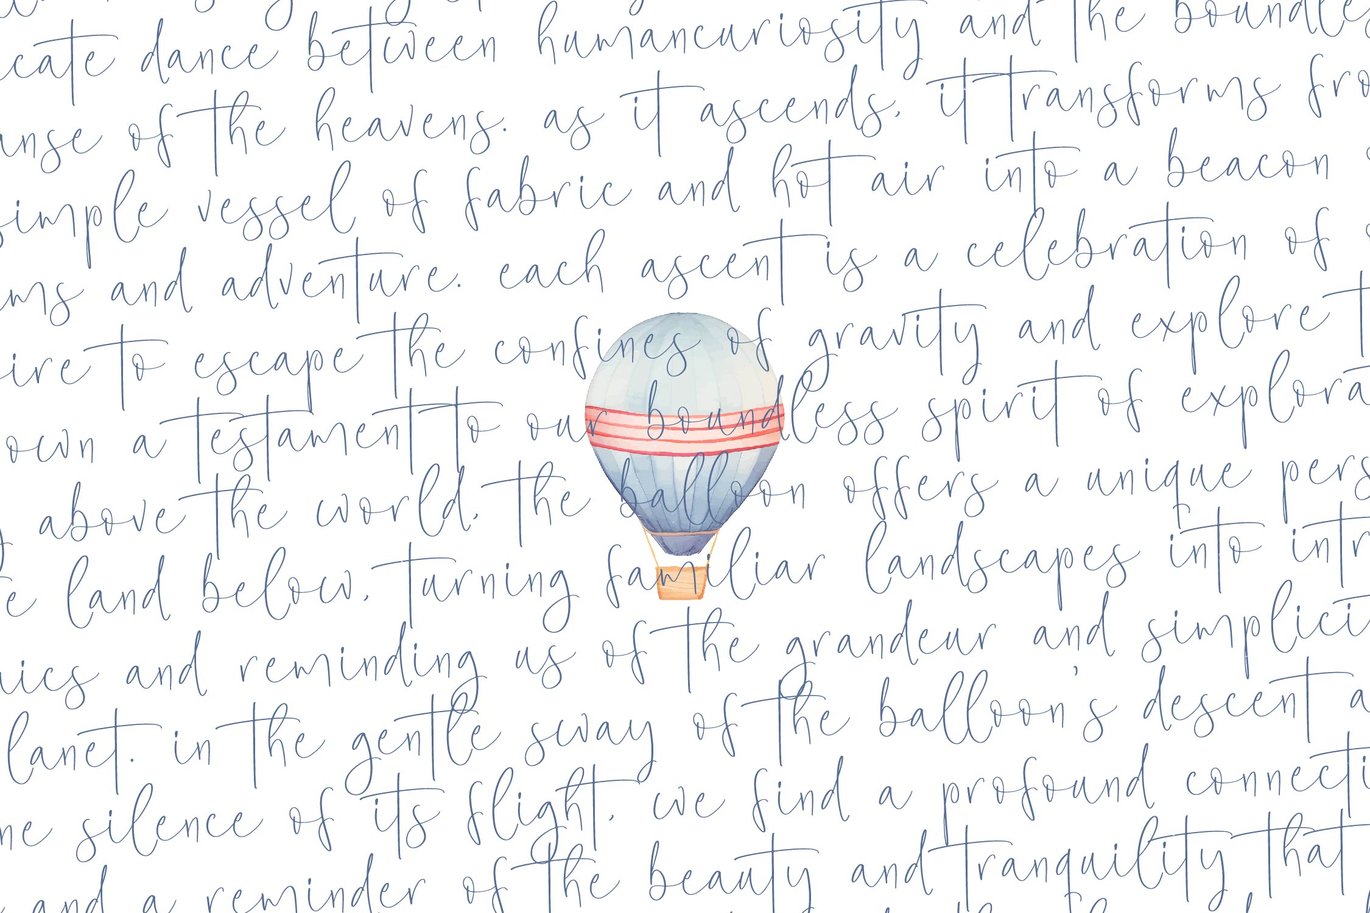 cate dance between humancuriosity and the boundles
anse of the heavens. as it ascends, it transforms fro
simple vessel of fabric and hot air into a beacon
ms and adventure. each ascent is a celebration of
ire to escape the confines of gravity and explore t
own a testament to our boundless spirit of explora
above the world, the balloon offers a unique pers
e land below, turning familiar landscapes into intr
ics and reminding us of the grandeur and simplici
lanet. in the gentle sway of the balloon's descent a
ne silence of its flight, we find a profound connecti
and a reminder of the beauty and tranquility that